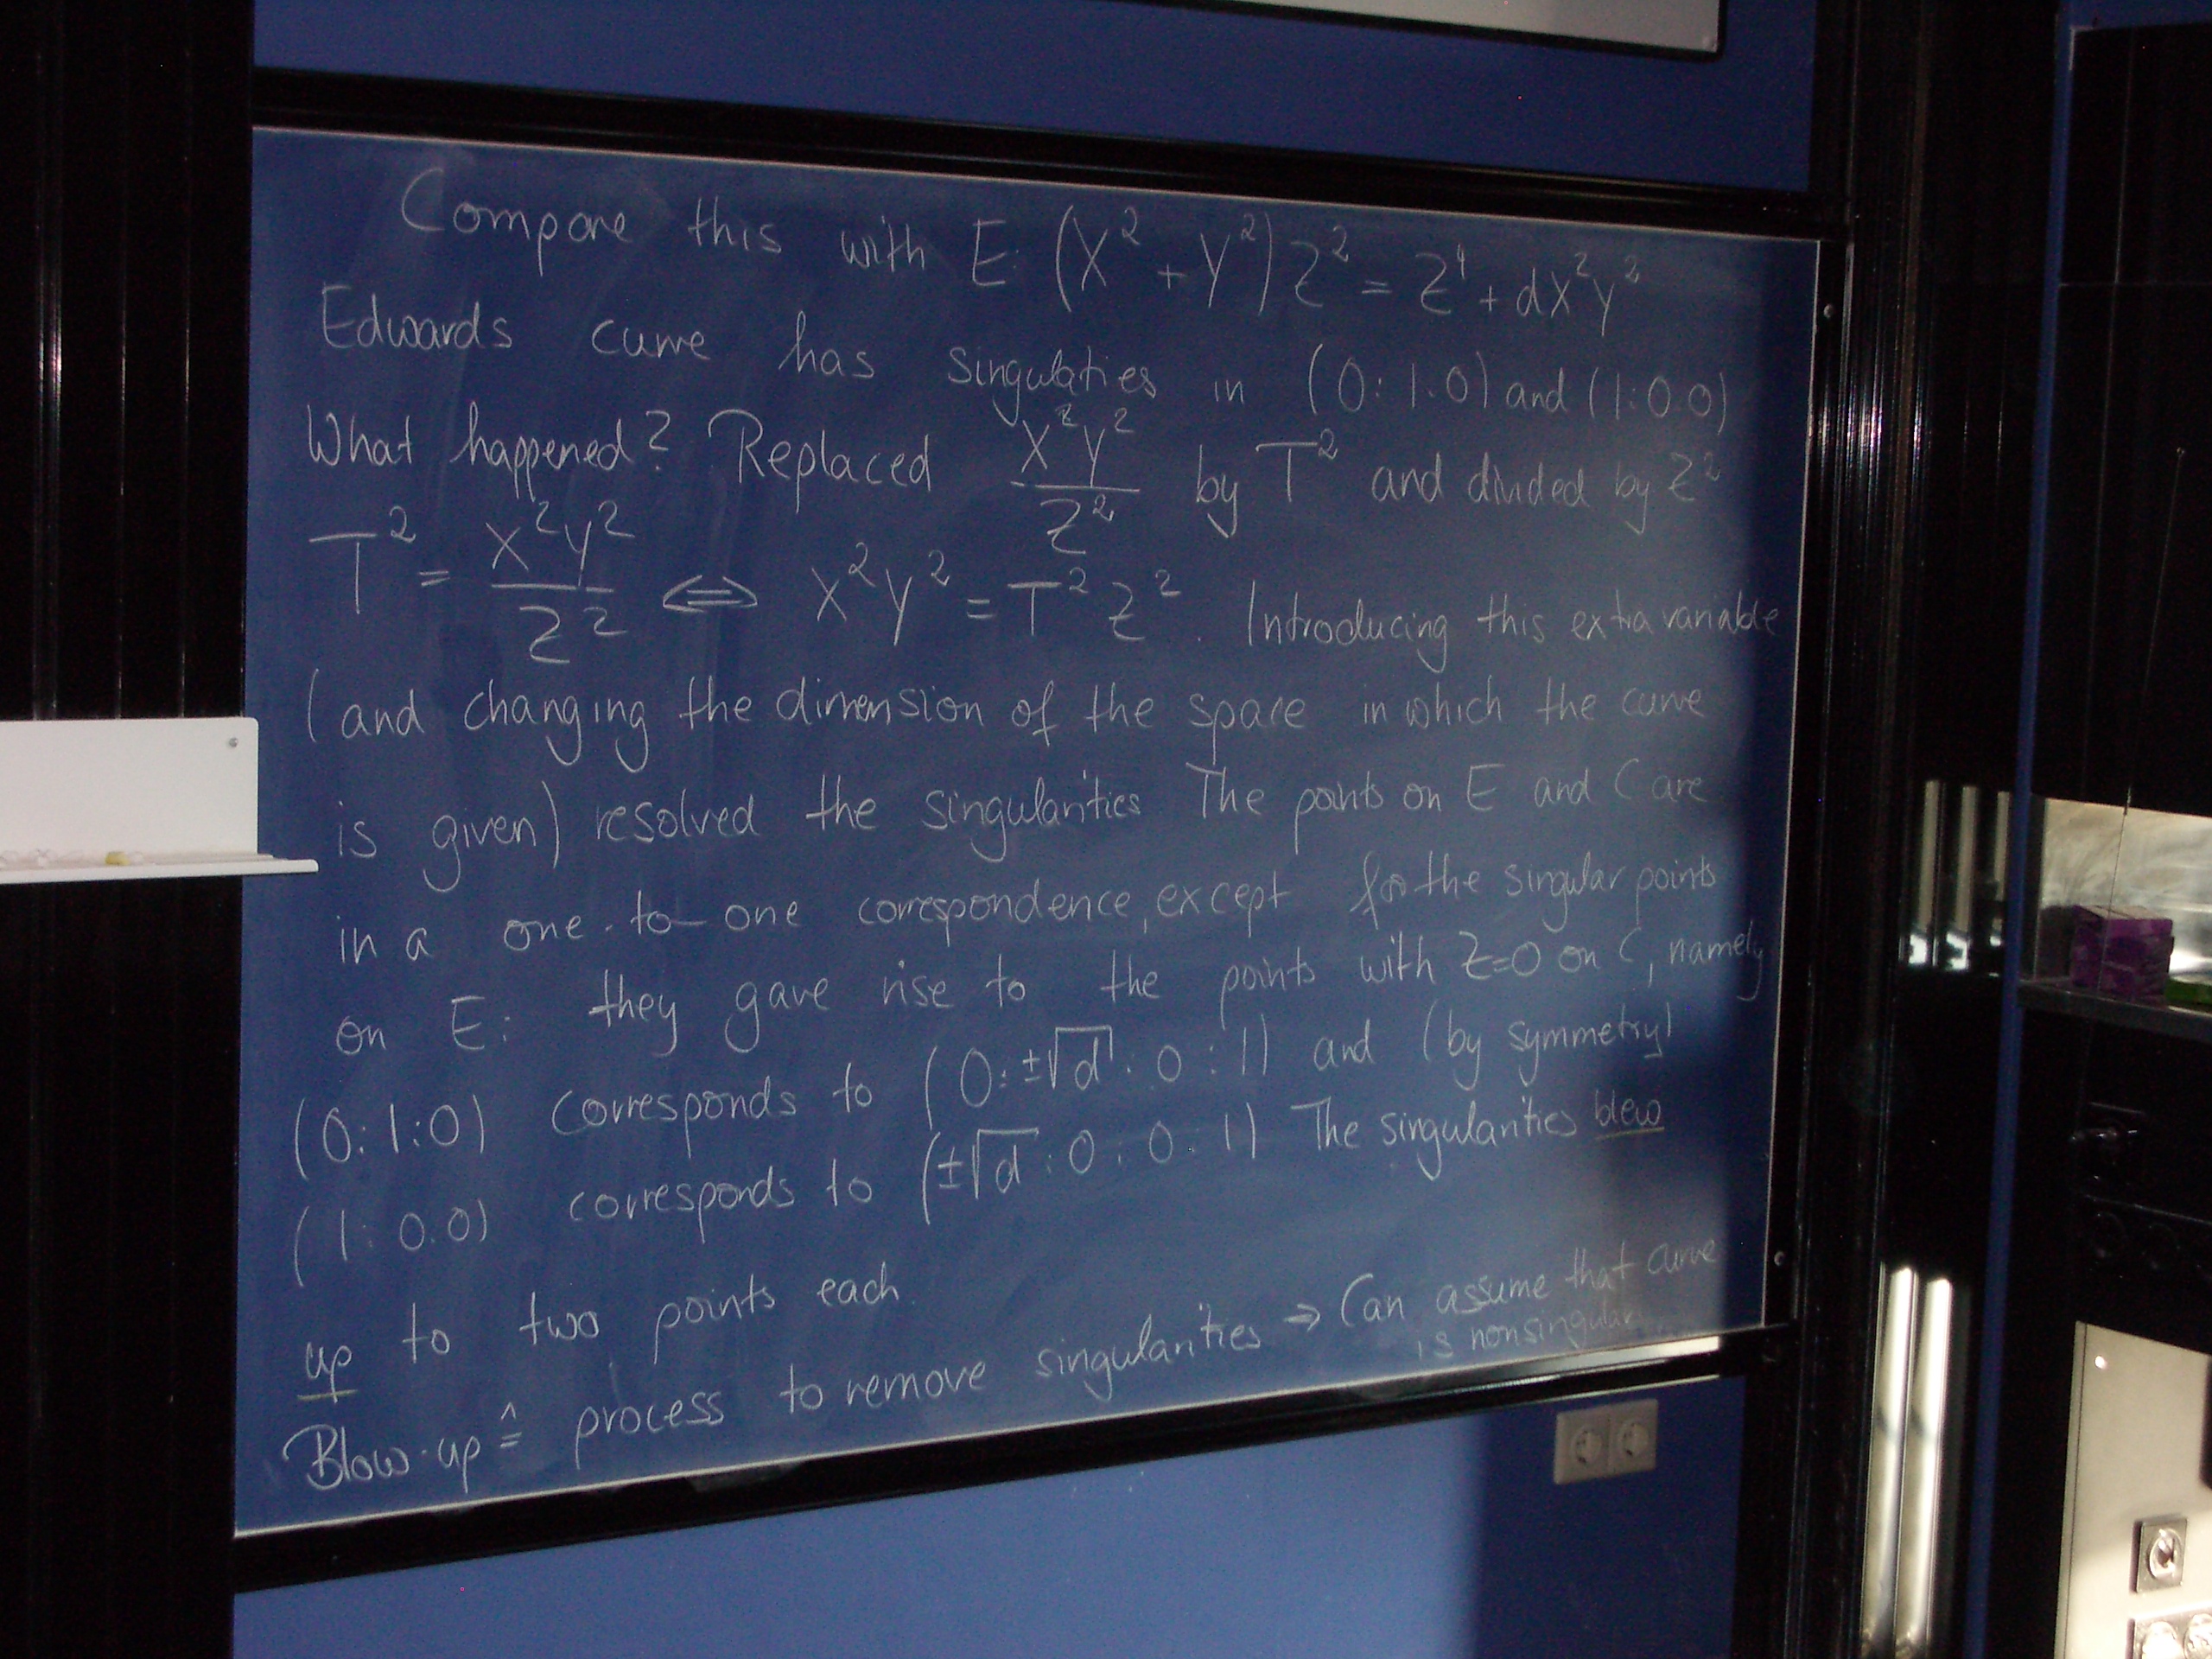 Compare this with E: (X² + Y²) Z² = Z⁴ + dX²Y²
Edwards curve has singulaties in (0:1:0) and (1:0:0)
What happened? Replaced X²Y²/Z² by T² and divided by Z²
T² = X²Y²/Z² ⇔ X²Y² = T²Z². Introducing this extra variable
(and changing the dimension of the space in which the curve
is given) resolved the singularities The points on E and C are
in a one-to-one correspondence, except for the singular points
on E: they gave rise to the points with Z=0 on C, namely
(0:1:0) corresponds to (0:±√d:0:1) and (by symmetry)
(1:0:0) corresponds to (±√d:0:0:1) The singularities blew
up to two points each.
Blow-up ≙ process to remove singularities → Can assume that curve
is nonsingular